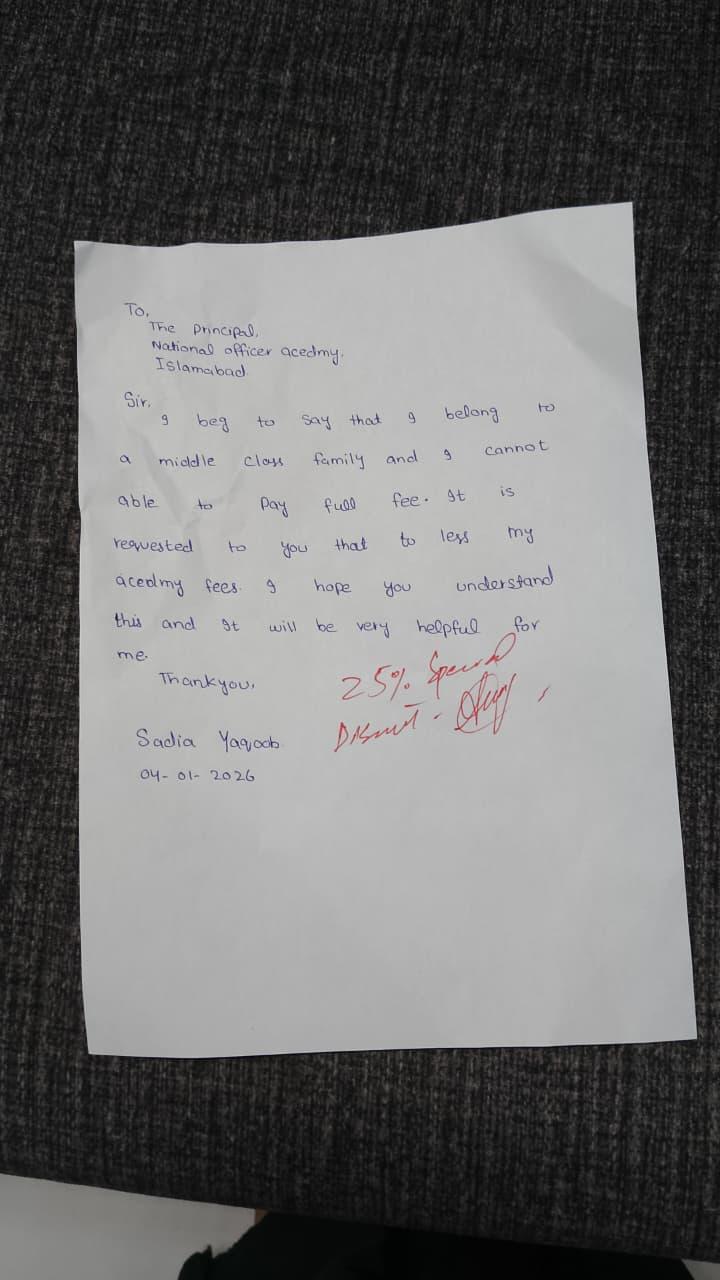 To,
The Principal,
National officer acedmy.
Islamabad.
Sir,
I beg to say that I belong to
a middle class family and I cannot
able to pay full fee. It is
requested to you that to less my
acedmy fees. I hope you understand
this and It will be very helpful for
me.
Thankyou,
25% Special
Discount.
Sadia Yaqoob
04-01-2026